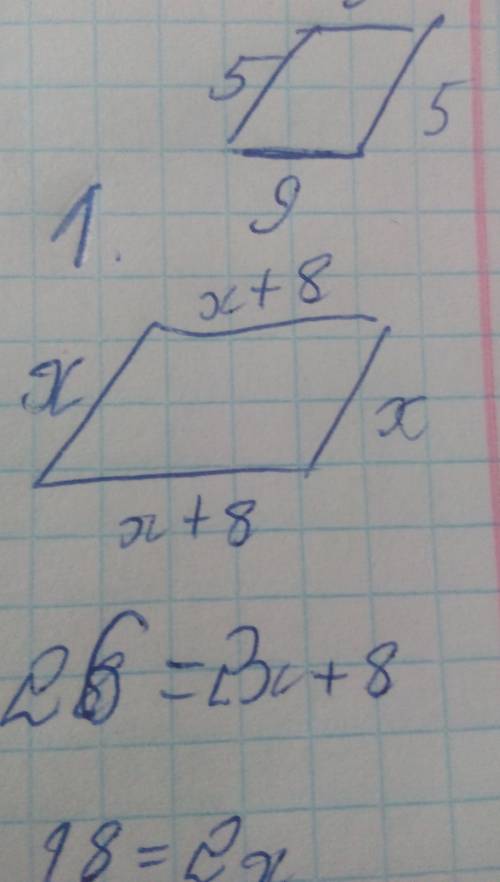 5
5
9
1.
x+8
x
x
x+8
= x + 8
18 = 2x